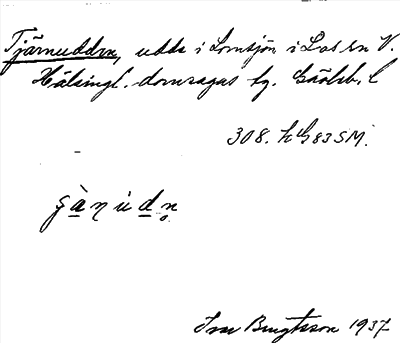 Tjärnudden, udde i Lomsjön i Los sn V.
Hälsingl. domsagas tg. Gävleb. l
308. h G 83 SM.
Ivar Bengtsson 1937